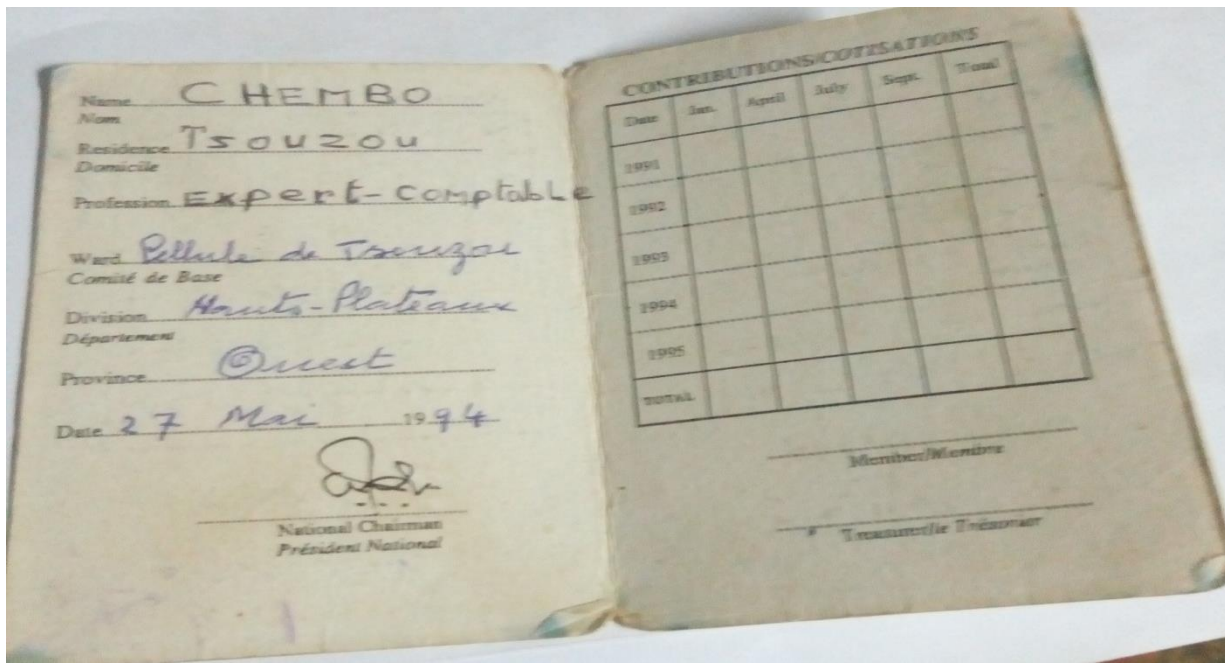 Name CHEMBO
Nom
Residence TSOUZOU
Domicile
Profession Expert-Comptable
Ward Cellule de Tsouzou
Comité de Base
Division Hauts-Plateaux
Département
Province Ouest
Date 27 Mai 1994
National Chairman
Président National
CONTRIBUTIONS/COTISATIONS
Date Jan. April July Sept. Total
1991
1992
1993
1994
1995
TOTAL
Member/Membre
Treasurer/le Trésorier